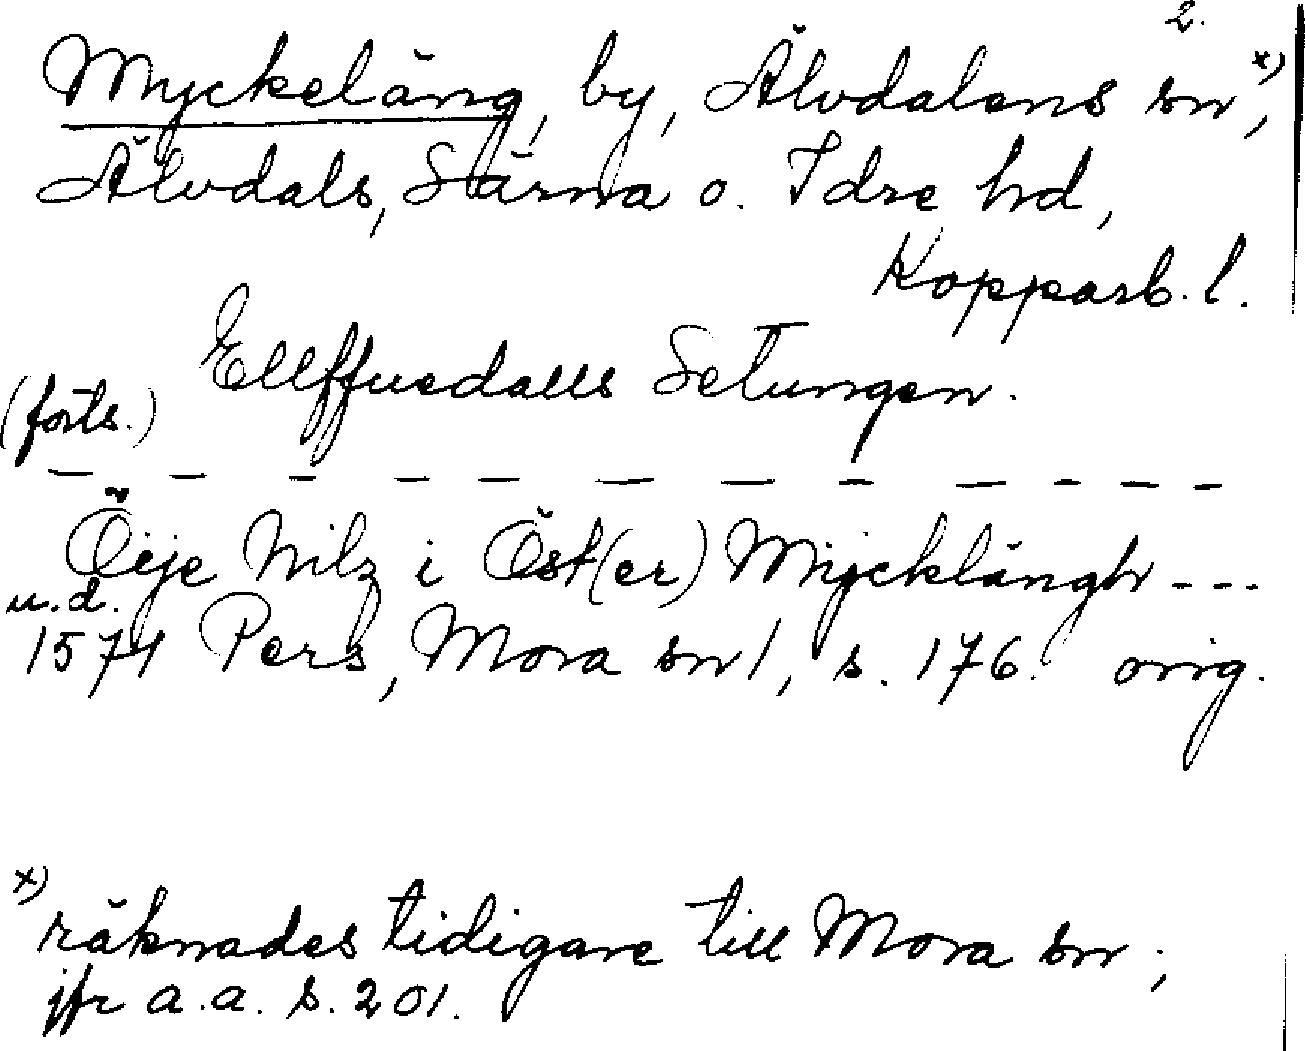 2.
Myckeläng, by, Älvdalens sn x),
Älvdals, Särna o. Idre hd,
Kopparb. l.
(forts.) Ellffuedalls Setungen.
— — — — — — — — — — — —
Öije Nilz i Öst(er) Mycklängh ---
u.d.
1571 Pers, Mora sn 1, s. 176. orig.
x) räknades tidigare till Mora sn;
jfr a.a. s. 201.